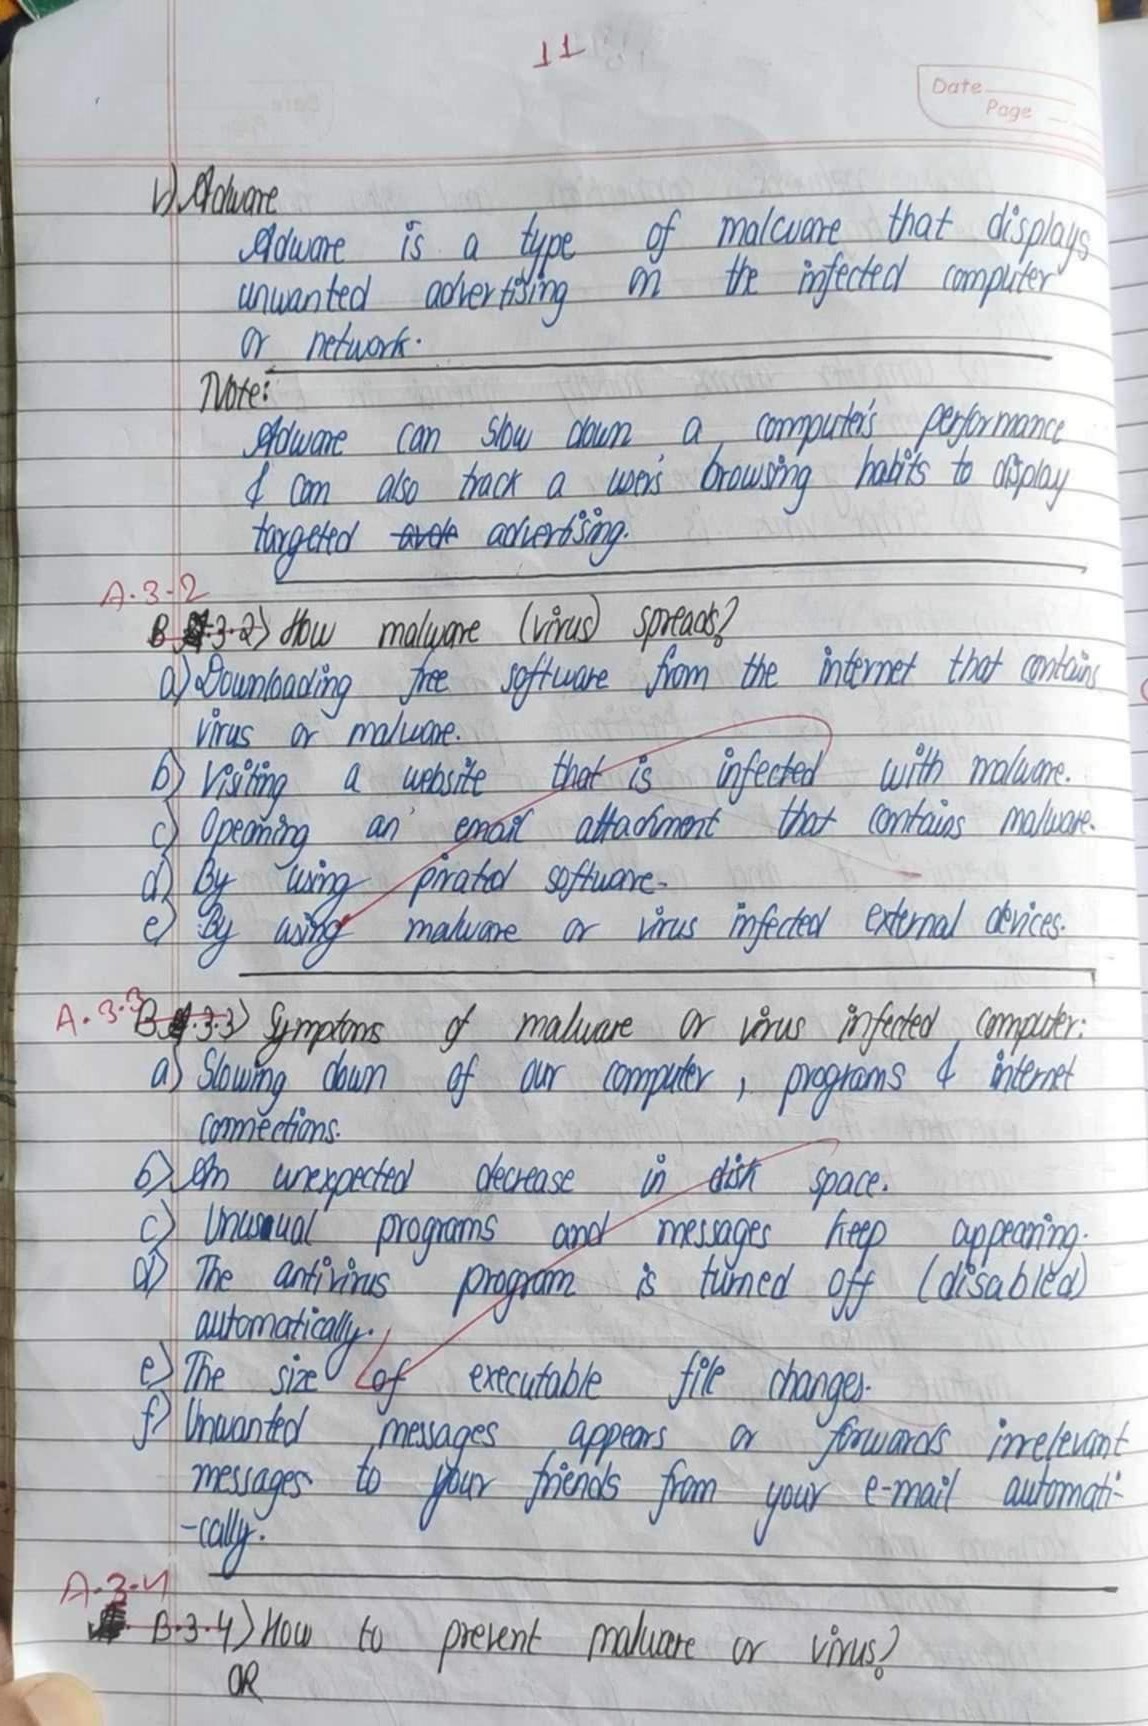 11
Date
Page
b) Adware
Adware is a type of malware that displays
unwanted advertising on the infected computer
or network.
Note:
Adware can slow down a computer's performance
& can also track a user's browsing habits to display
targeted advertising.
A.3.2
B 3.2) How malware (virus) spreads?
a) Downloading free software from the internet that contains
virus or malware.
b) Visiting a website that is infected with malware.
c) Opeaning an email attachment that contains malware.
d) By using pirated software.
e) By using malware or virus infected external devices.
A.3.3
B .3.3) Symptoms of malware or virus infected computer:
a) Slowing down of our computer, programs & internet
connections.
b) An unexpected decrease in disk space.
c) Unusual programs and messages keep appearing.
d) The antivirus program is turned off (disabled)
automatically.
e) The size of executable file changes.
f) Unwanted messages appears or forwards irrelevant
messages to your friends from your e-mail automati-
-cally.
A.3.4
B.3.4) How to prevent malware or virus?
OR